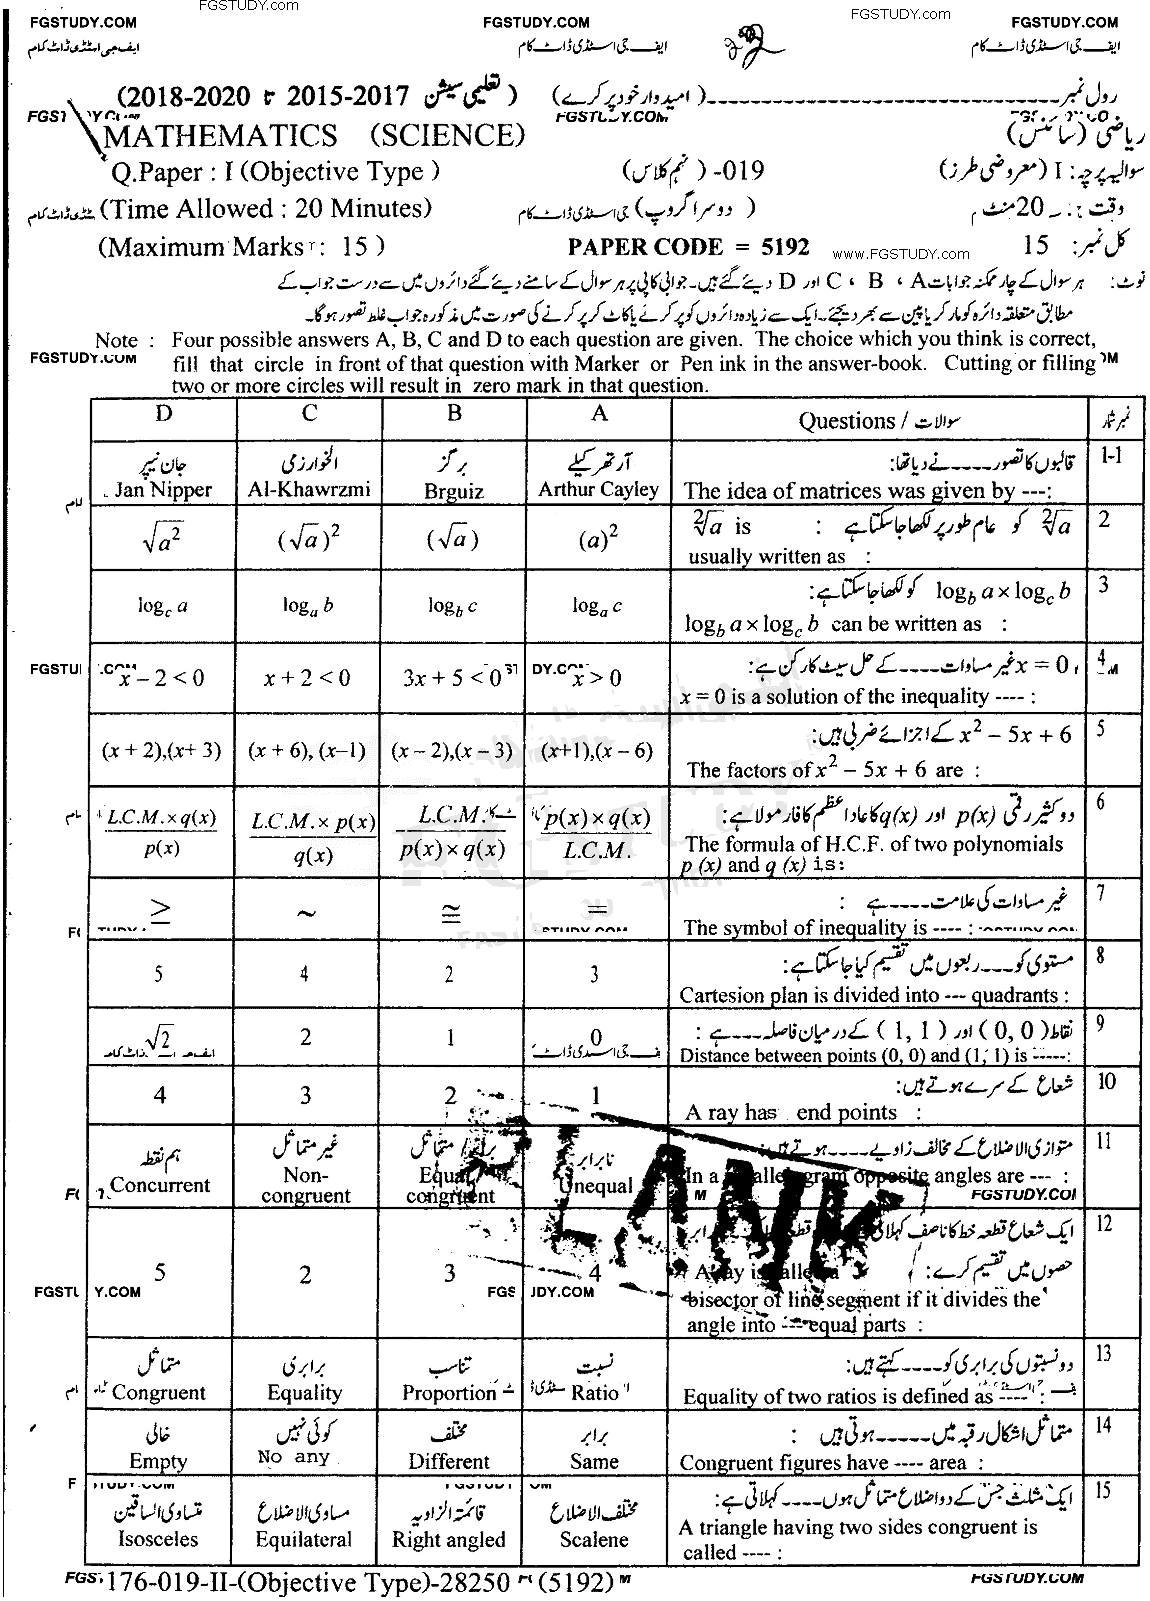 FGSTUDY.COM FGSTUDY.com FGSTUDY.com FGSTUDY.COM FGSTUDY.COM
ایف جی اسٹڈی ڈاٹ کام ایف جی اسٹڈی ڈاٹ کام ایف جی اسٹڈی ڈاٹ کام
رول نمبر (امیدوار خود پر کرے) (تعلیمی سیشن 2015-2017 تا 2018-2020)
FGSTUDY.COM
MATHEMATICS (SCIENCE) ریاضی (سائنس)
Q.Paper : I (Objective Type ) 019- (نہم کلاس) سوالیہ پرچہ : I (معروضی طرز)
(Time Allowed : 20 Minutes) (دوسرا گروپ) وقت : 20 منٹ
(Maximum Marks : 15 ) PAPER CODE = 5192 www.FGSTUDY.com کل نمبر: 15
نوٹ: ہر سوال کے چار ممکنہ جوابات A ، B ، C اور D دیئے گئے ہیں۔ جوابی کاپی پر ہر سوال کے سامنے دیئے گئے دائروں میں سے درست جواب کے
مطابق متعلقہ دائرہ کو مارکر یا پین سے بھر دیجئے۔ ایک سے زیادہ دائروں کو پر کرنے یا کاٹ کر پر کرنے کی صورت میں مذکورہ جواب غلط تصور ہوگا۔
Note : Four possible answers A, B, C and D to each question are given. The choice which you think is correct,
FGSTUDY.COM fill that circle in front of that question with Marker or Pen ink in the answer-book. Cutting or filling
two or more circles will result in zero mark in that question.
D C B A Questions / سوالات نمبر شمار
جان نیپر الخوارزمی برگز آرتھر کیلے قالبوں کا تصور ---- نے دیا تھا: 1-1
Jan Nipper Al-Khawrzmi Brguiz Arthur Cayley The idea of matrices was given by ---:
√a² (√a)² (√a) (a)² ²√a is : ²√a کو عام طور پر لکھا جاسکتا ہے 2
usually written as :
log_c a log_a b log_b c log_a c log_b a × log_c b کو لکھا جاسکتا ہے: 3
log_b a × log_c b can be written as :
x − 2 < 0 x + 2 < 0 3x + 5 < 0 x > 0 x = 0 غیر مساوات ---- کے حل سیٹ کا رکن ہے: 4
x = 0 is a solution of the inequality ---- :
(x + 2),(x+ 3) (x + 6), (x−1) (x − 2),(x − 3) (x+1),(x − 6) x² − 5x + 6 کے اجزائے ضربی ہیں: 5
The factors of x² − 5x + 6 are :
L.C.M.×q(x)/p(x) L.C.M.×p(x)/q(x) L.C.M./p(x)×q(x) p(x)×q(x)/L.C.M. دو کثیر رقمی p(x) اور q(x) کا عاداعظم کا فارمولا ہے: 6
The formula of H.C.F. of two polynomials
p (x) and q (x) is:
≥ ~ ≅ = غیر مساوات کی علامت ---- ہے : 7
The symbol of inequality is ---- :
5 4 2 3 مستوی کو --- ربعوں میں تقسیم کیا جاسکتا ہے: 8
Cartesion plan is divided into --- quadrants :
√2 2 1 0 نقاط (0, 0) اور (1, 1) کے درمیان فاصلہ ---- ہے : 9
Distance between points (0, 0) and (1, 1) is -----:
4 3 2 1 شعاع کے سرے ہوتے ہیں: 10
A ray has end points :
BLANK
ہم نقطہ غیر متماثل متماثل نابرابر متوازی الاضلاع کے مخالف زاویے ---- ہوتے ہیں: 11
Concurrent Non-congruent Equal congruent Unequal In a opposite angles are --- :
FGSTUDY.COM
ایک شعاع قطعہ خط کا ناصف کہلاتی 12
5 2 3 4 حصوں میں تقسیم کرے:
A ray is called a
bisector of line segment if it divides the
angle into --- equal parts :
متماثل برابری تناسب نسبت دو نسبتوں کی برابری کو ---- کہتے ہیں: 13
Congruent Equality Proportion Ratio Equality of two ratios is defined as ---- :
خالی کوئی نہیں مختلف برابر متماثل اشکال رقبہ میں ----- ہوتی ہیں : 14
Empty No any Different Same Congruent figures have ---- area :
متساوی الساقین مساوی الاضلاع قائمۃ الزاویہ مختلف الاضلاع ایک مثلث جس کے دو اضلاع متماثل ہوں ---- کہلاتی ہے: 15
Isosceles Equilateral Right angled Scalene A triangle having two sides congruent is
called ---- :
176-019-II-(Objective Type)-28250 (5192) FGSTUDY.COM